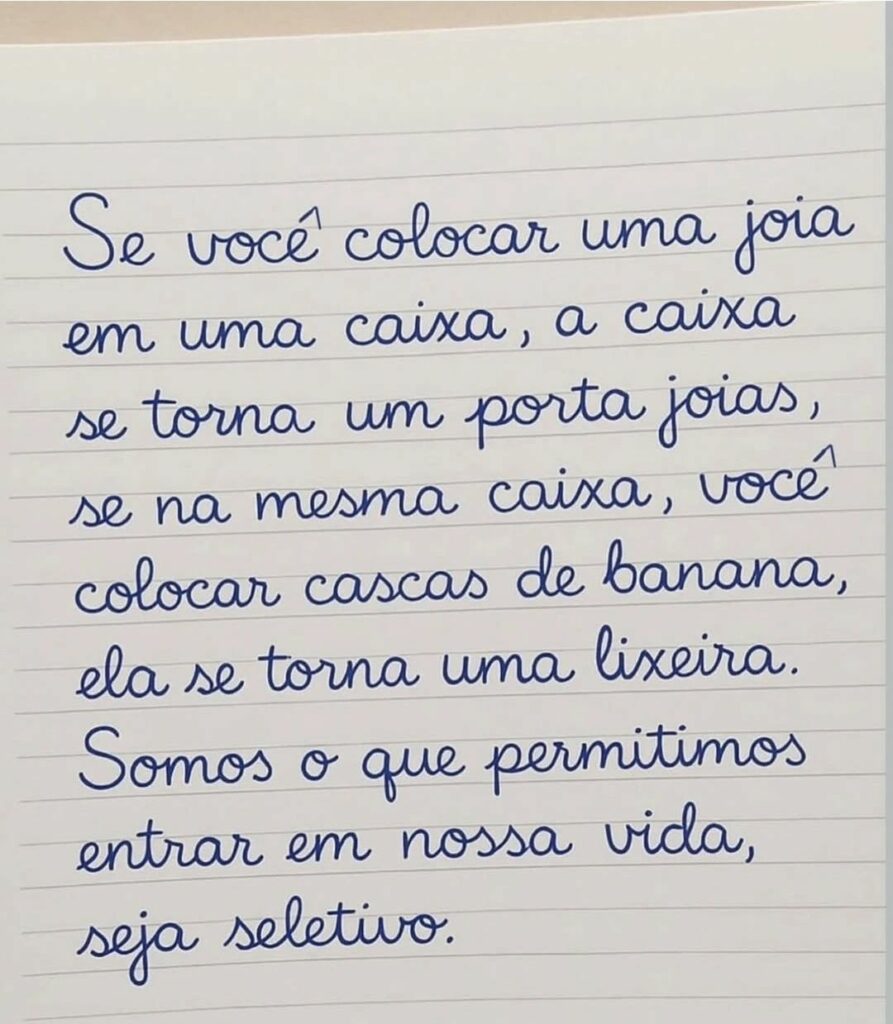 Se você colocar uma joia
em uma caixa, a caixa
se torna um porta joias,
se na mesma caixa, você
colocar cascas de banana,
ela se torna uma lixeira.
Somos o que permitimos
entrar em nossa vida,
seja seletivo.